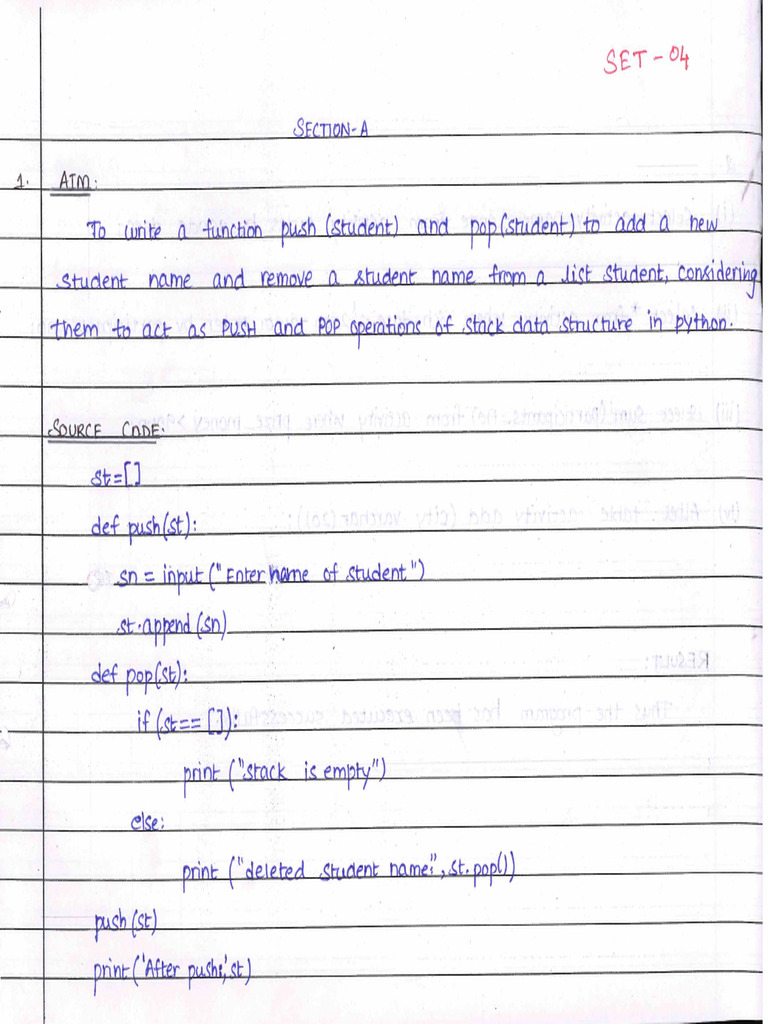 SET - 04
SECTION-A
1. AIM:
To write a function push (student) and pop (student) to add a new
student name and remove a student name from a list student, considering
them to act as PUSH and POP operations of stack data structure in python.
SOURCE CODE:
st=[]
def push(st):
sn = input ("Enter name of student")
st.append(sn)
def pop(st):
if (st==[]):
print ("stack is empty")
else:
print ("deleted student name:", st.pop())
push (st)
print ('After push:',st)